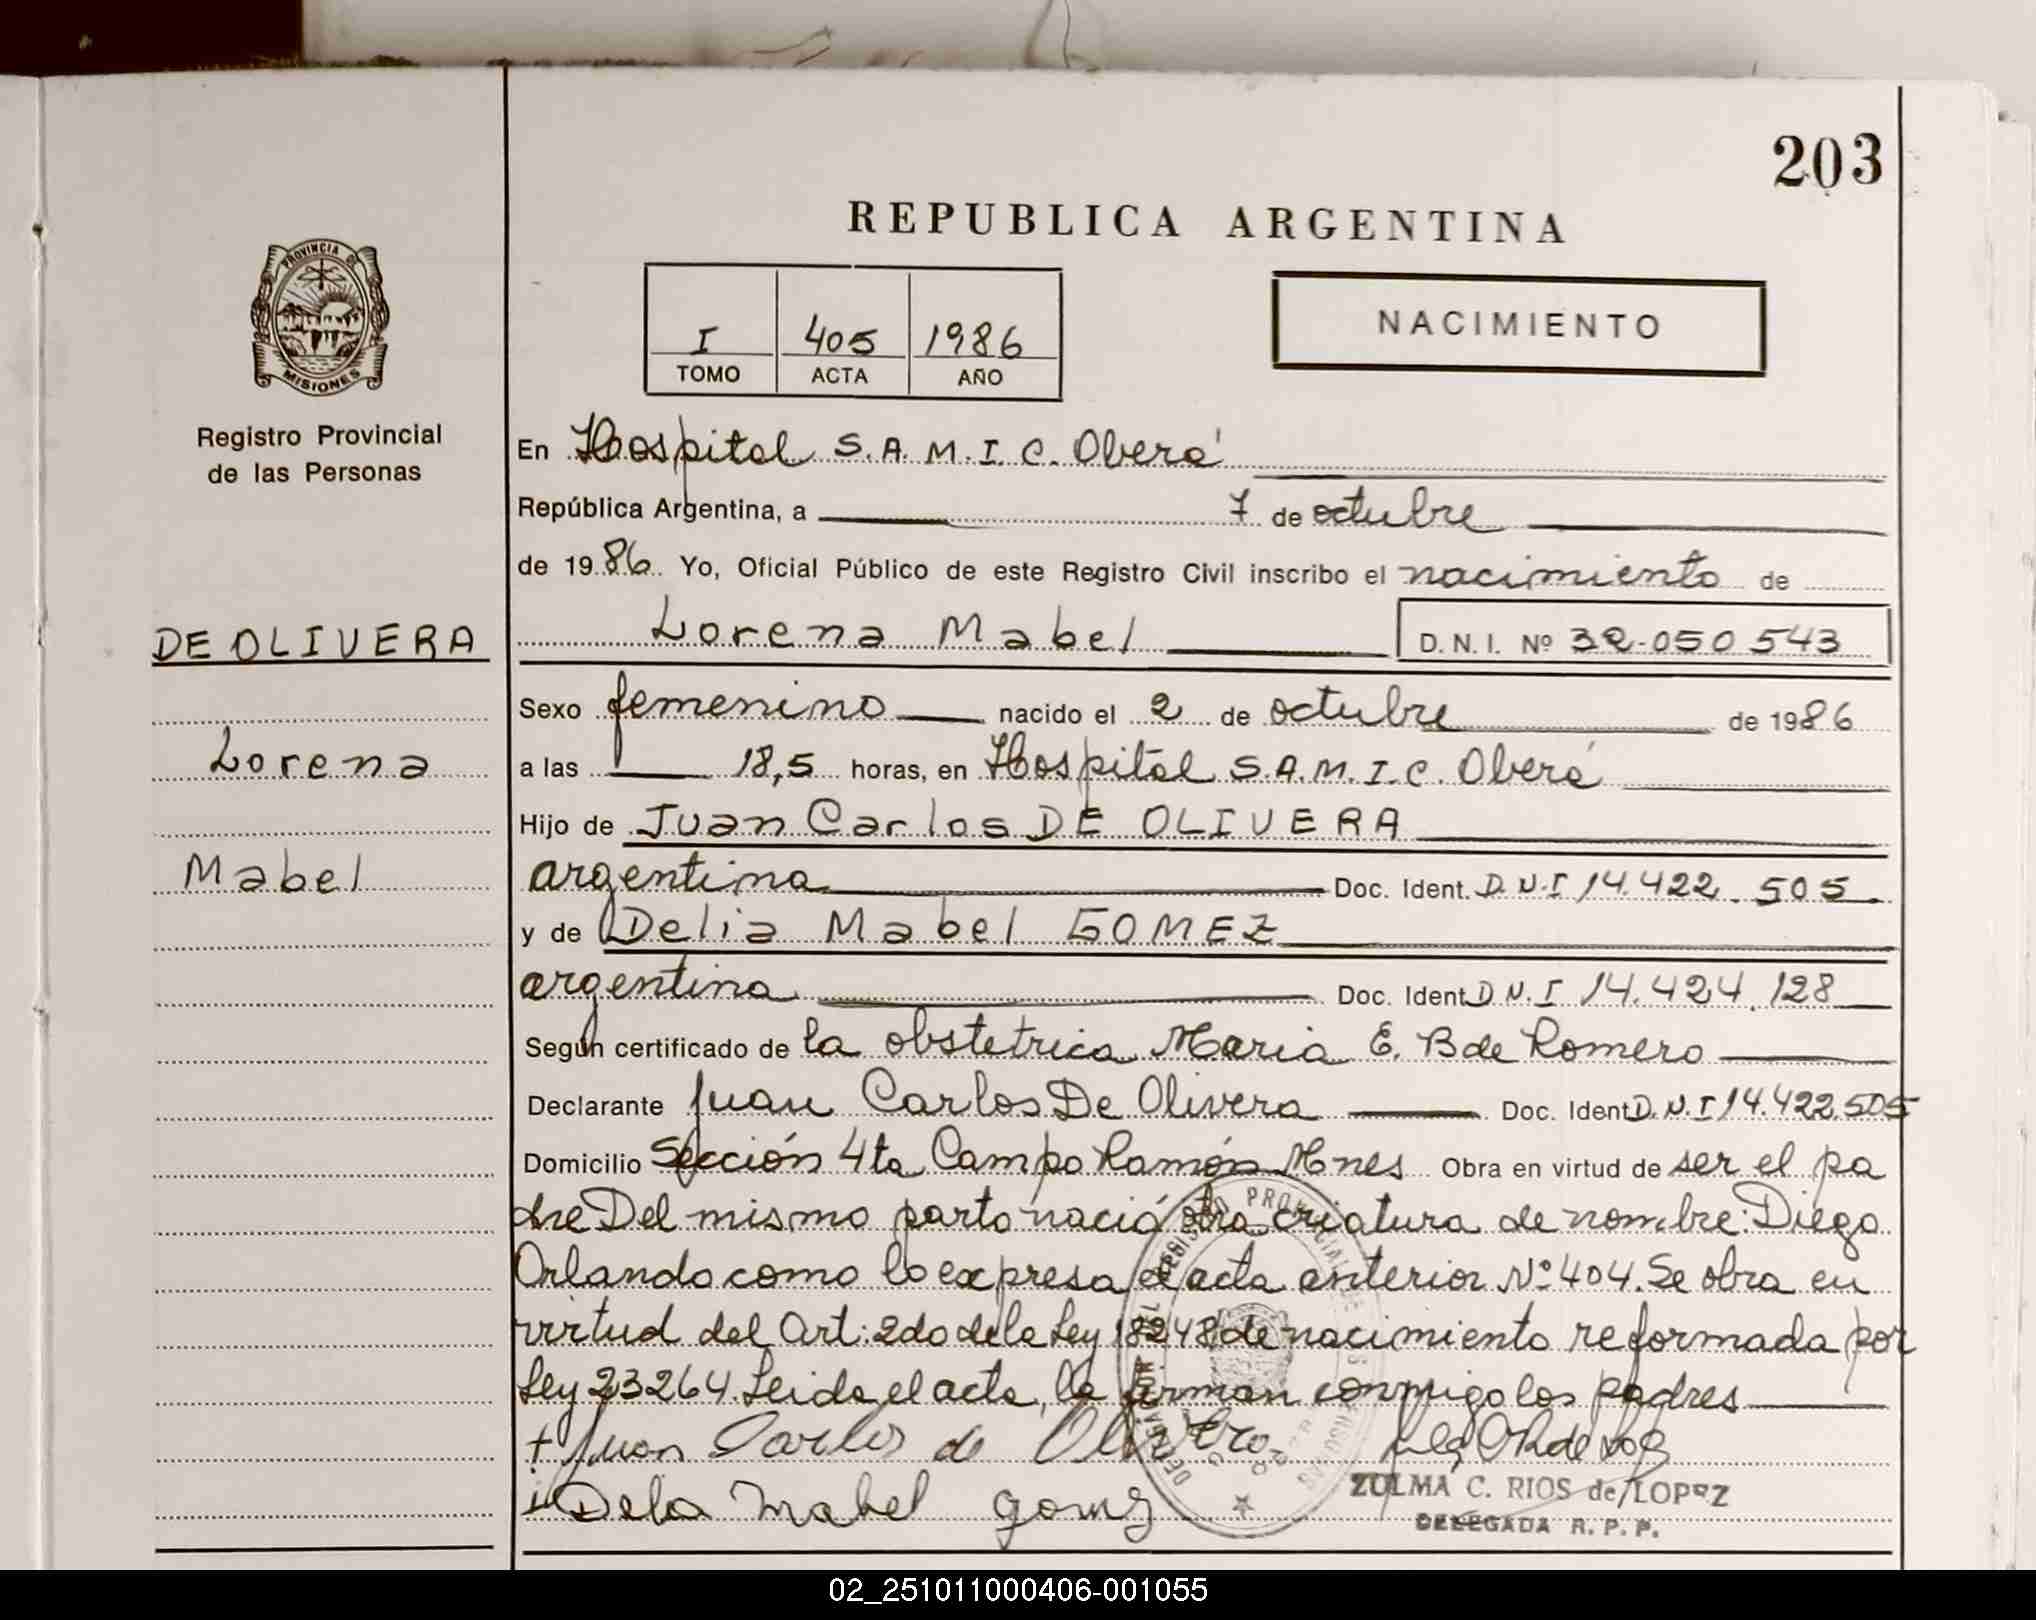 203
REPUBLICA ARGENTINA
PROVINCIA DE
MISIONES
Registro Provincial
de las Personas
I 405 1986
TOMO ACTA AÑO
NACIMIENTO
En Hospital S.A.M.I.C. Oberá
República Argentina, a 7 de octubre
de 1986 Yo, Oficial Público de este Registro Civil inscribo el nacimiento de
DE OLIVERA
Lorena Mabel D.N.I. Nº 32.050 543
Sexo femenino nacido el 2 de octubre de 1986
Lorena
a las 18,5 horas, en Hospital S.A.M.I.C. Oberá
Hijo de Juan Carlos DE OLIVERA
Mabel
argentina Doc. Ident. D.N.I 14.422.505
y de Delia Mabel GOMEZ
argentina Doc. Ident D N.I 14.424.128
Según certificado de la obstetrica Maria E. B de Romero
Declarante Juan Carlos De Olivera Doc. Ident D.N.I 14.422.505
Domicilio Sección 4ta Campo Ramón Mnes Obra en virtud de ser el pa
dre Del mismo parto nació otra criatura de nombre: Diego
Orlando como lo expresa el acta anterior Nº 404. Se obra en
virtud del Art: 2do de la Ley 18248 de nacimiento reformada por
Ley 23264. Leida el acta, la firman conmigo los padres
Juan Carlos de Olivera
ZULMA C. RIOS de LOPEZ
Dela Mabel gomz
DELEGADA R. P. P.
02_251011000406-001055